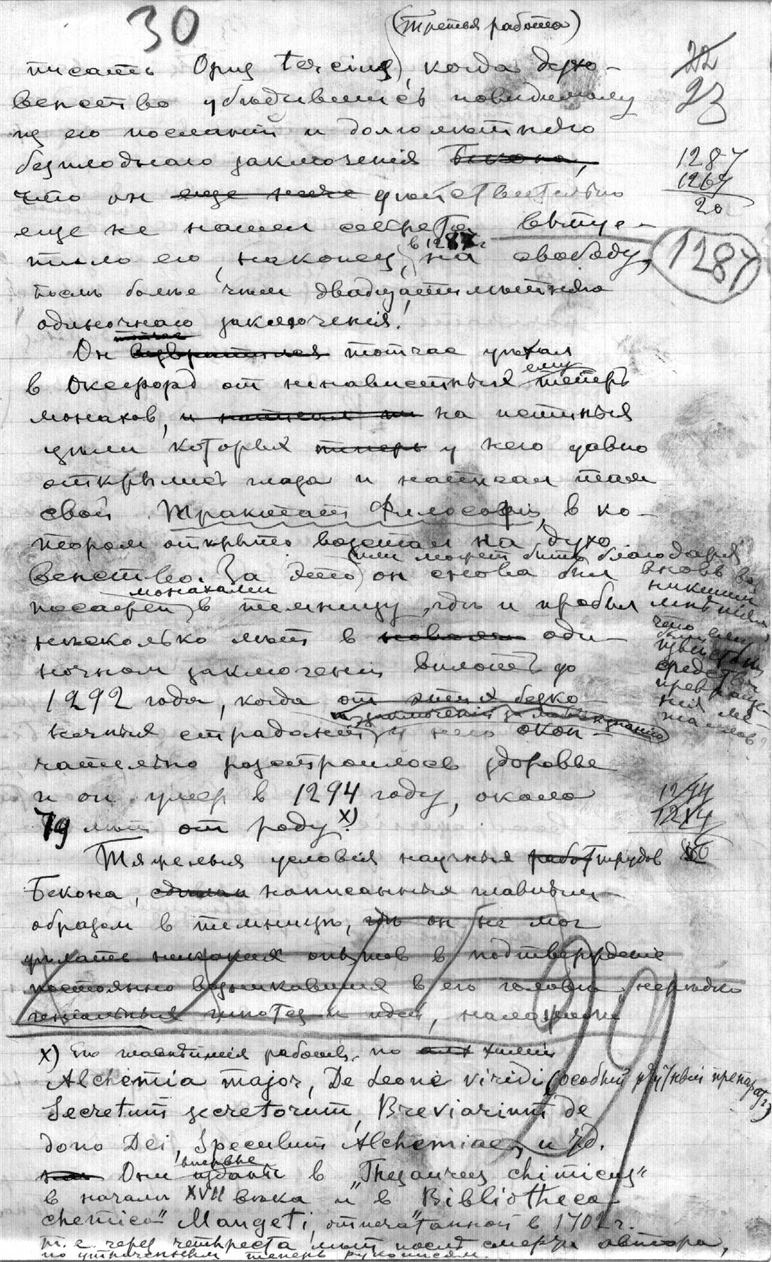 30
(Третья работа)
писать Opus tercius), когда духо-
венство убѣдившись повидимому
из его посланій и долголѣтняго
безплоднаго заключенія Бекона,
что он еще дѣйствительно
еще не нашел секрета выпу-
стило его, наконец, в 1287 г. на свободу,
послѣ болѣе чѣм двадцатилѣтняго
одиночнаго заключенія!
22
23
1287
1267
20
1287
Он тотчас уѣхал
в Оксфорд от ненавистных ему теперь
монахов, на истинныя
цѣли которых теперь у него давно
открылись глаза и написал там
свой Трактат Философіи, в ко-
тором открыто возстал на духо-
венство. За это (или может быть благодаря
вновь воз-
никшим
мнѣніям,
что ему
извѣстны
средства
превраще-
нія ме-
таллов)
он снова был
посажен монахами в темницу, гдѣ и пробыл
нѣсколько лѣт в оди-
ночном заключеніи вплоть до
1292 года, когда от этих безко-
нечных страданій у него окон-
чательно разстроилось здоровье
и он умер в 1294 году, около
79 лѣт от роду x).
1294
1214
80
Тяжелыя условія научных работ трудов
Бекона, написанных главным
образом в темницѣ, гдѣ он не мог
дѣлать никаких опытов в подтвержденіе
постоянно возникавших в его головѣ, нерѣдко
геніальных гипотез и идей,
99
x) Его главнѣйшія работы по химіи
Alchemia major, De Leone viridi (особый ртутный препарат),
Secretum secretorum, Breviarium de
dono Dei, Speculum Alchemiae, и др.
Они впервые изданы в "Thesaurus chimicus"
в началѣ XVII вѣка и в "Bibliotheca
chemica" Mangeti, отпечатанной в 1702 г.
т. е. через четыреста лѣт послѣ смерти автора,
по утраченным теперь рукописям.